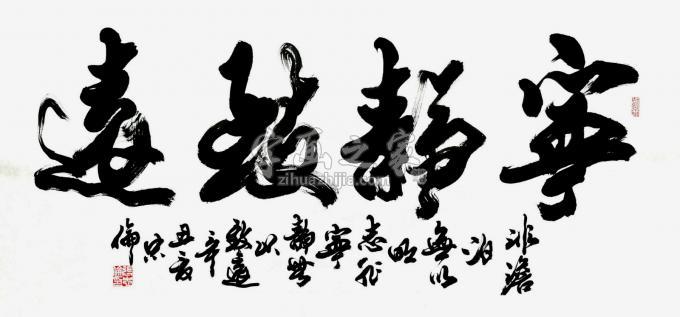 寧靜致遠
非澹泊無以明志非寧靜無以致遠辛丑夏倫
字画之家
zihuazhijia.com